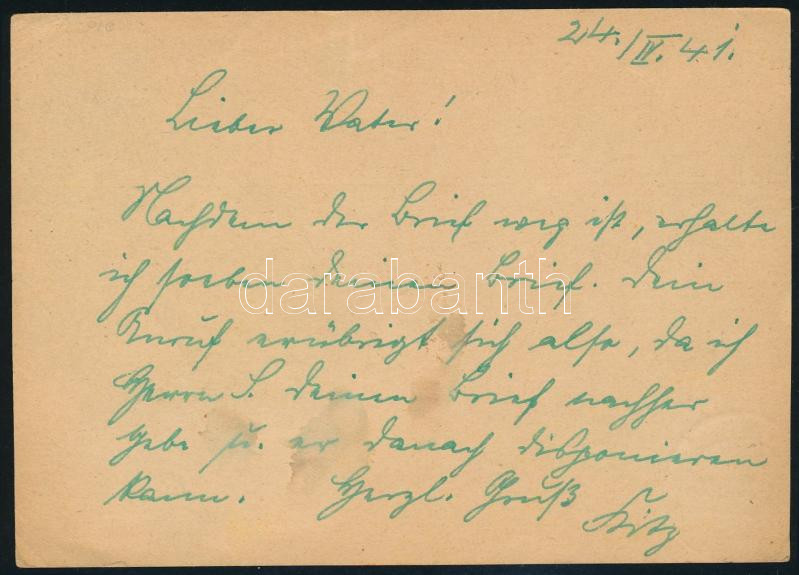 24./IV. 41.
Lieber Vater!
Nachdem der Brief weg ist, erhalte
ich soeben deinen Brief. Dein
Anruf erübrigt sich also, da ich
Herrn S. deinen Brief nachher
gebe u. er danach disponieren
kann. Herzl. Gruß
Fritz
darabanth